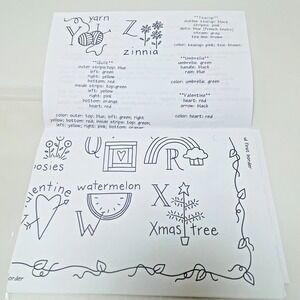 yarn
Y
Z
zinnia
**Quilt**
outer strips: top: blue
left: green
right: yellow
bottom: red
inside strips: top: green
left: yellow
right: pink
bottom: orange
heart: red
color: outer: top: blue, left: green; right
yellow; bottom: red; inside strips: top: green;
left: yellow; right: pink; bottom: orange
**Teacup**
outline teacup: black
stripes: pink
dots: blue (french knots)
steam: gray
tea bag: brown
color: teacup: pink; tea: brown
**Umbrella**
umbrella: green
handle: black
rain: blue
color: umbrella: green
**Valentine**
heart: red
arrow: black
color: heart: red
Q
R
posies
valentine
watermelon
W
X
Xmas tree
border
of first border